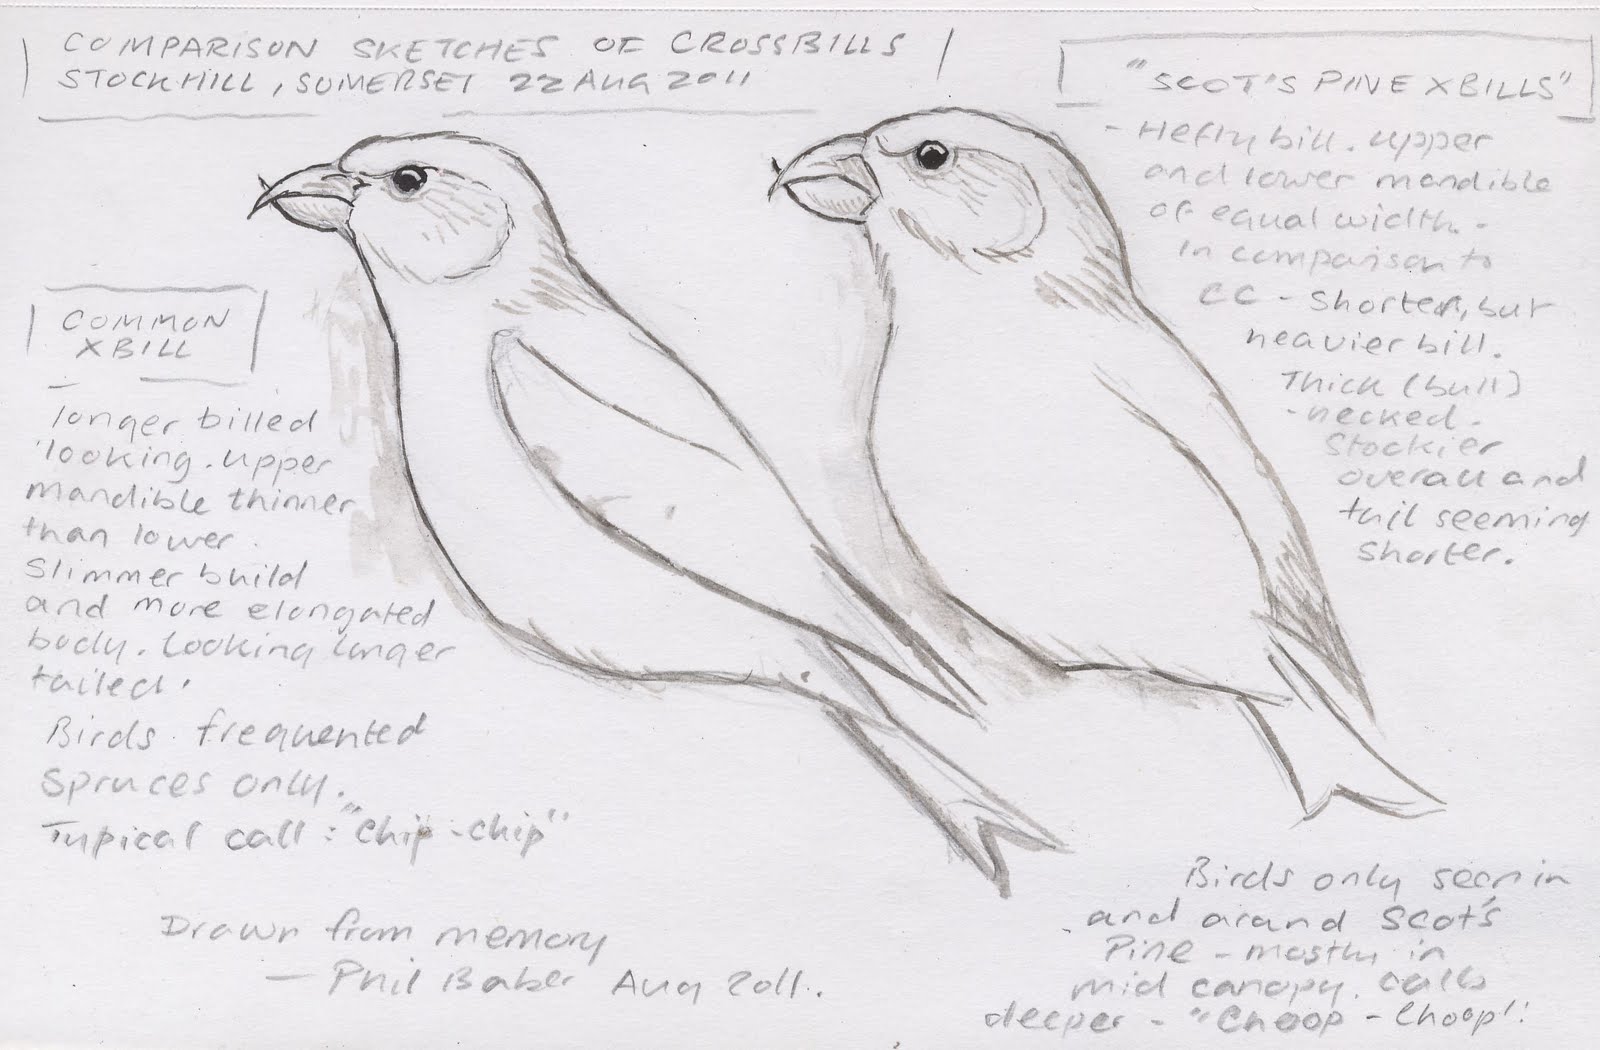 COMPARISON SKETCHES OF CROSSBILLS
STOCKHILL, SOMERSET 22 Aug 2011
"SCOT'S PINE XBILLS"
- Hefty bill. upper
and lower mandible
of equal width. -
In comparison to
CC - Shorter, but
heavier bill.
Thick (bull)
- necked.
Stockier
overall and
tail seeming
shorter.
COMMON
XBILL
longer billed
looking. upper
mandible thinner
than lower.
Slimmer build
and more elongated
body. Looking longer
tailed.
Birds frequented
Spruces only.
Typical call: "Chip-Chip"
Drawn from memory
- Phil Baber Aug 2011.
Birds only seen in
and around Scot's
Pine - mostly in
mid canopy. calls
deeper - "Choop - Choop".